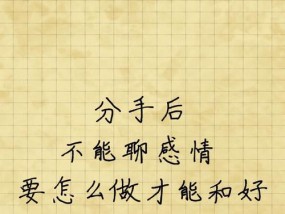 分手后
不能聊感情
要怎么做才能和好